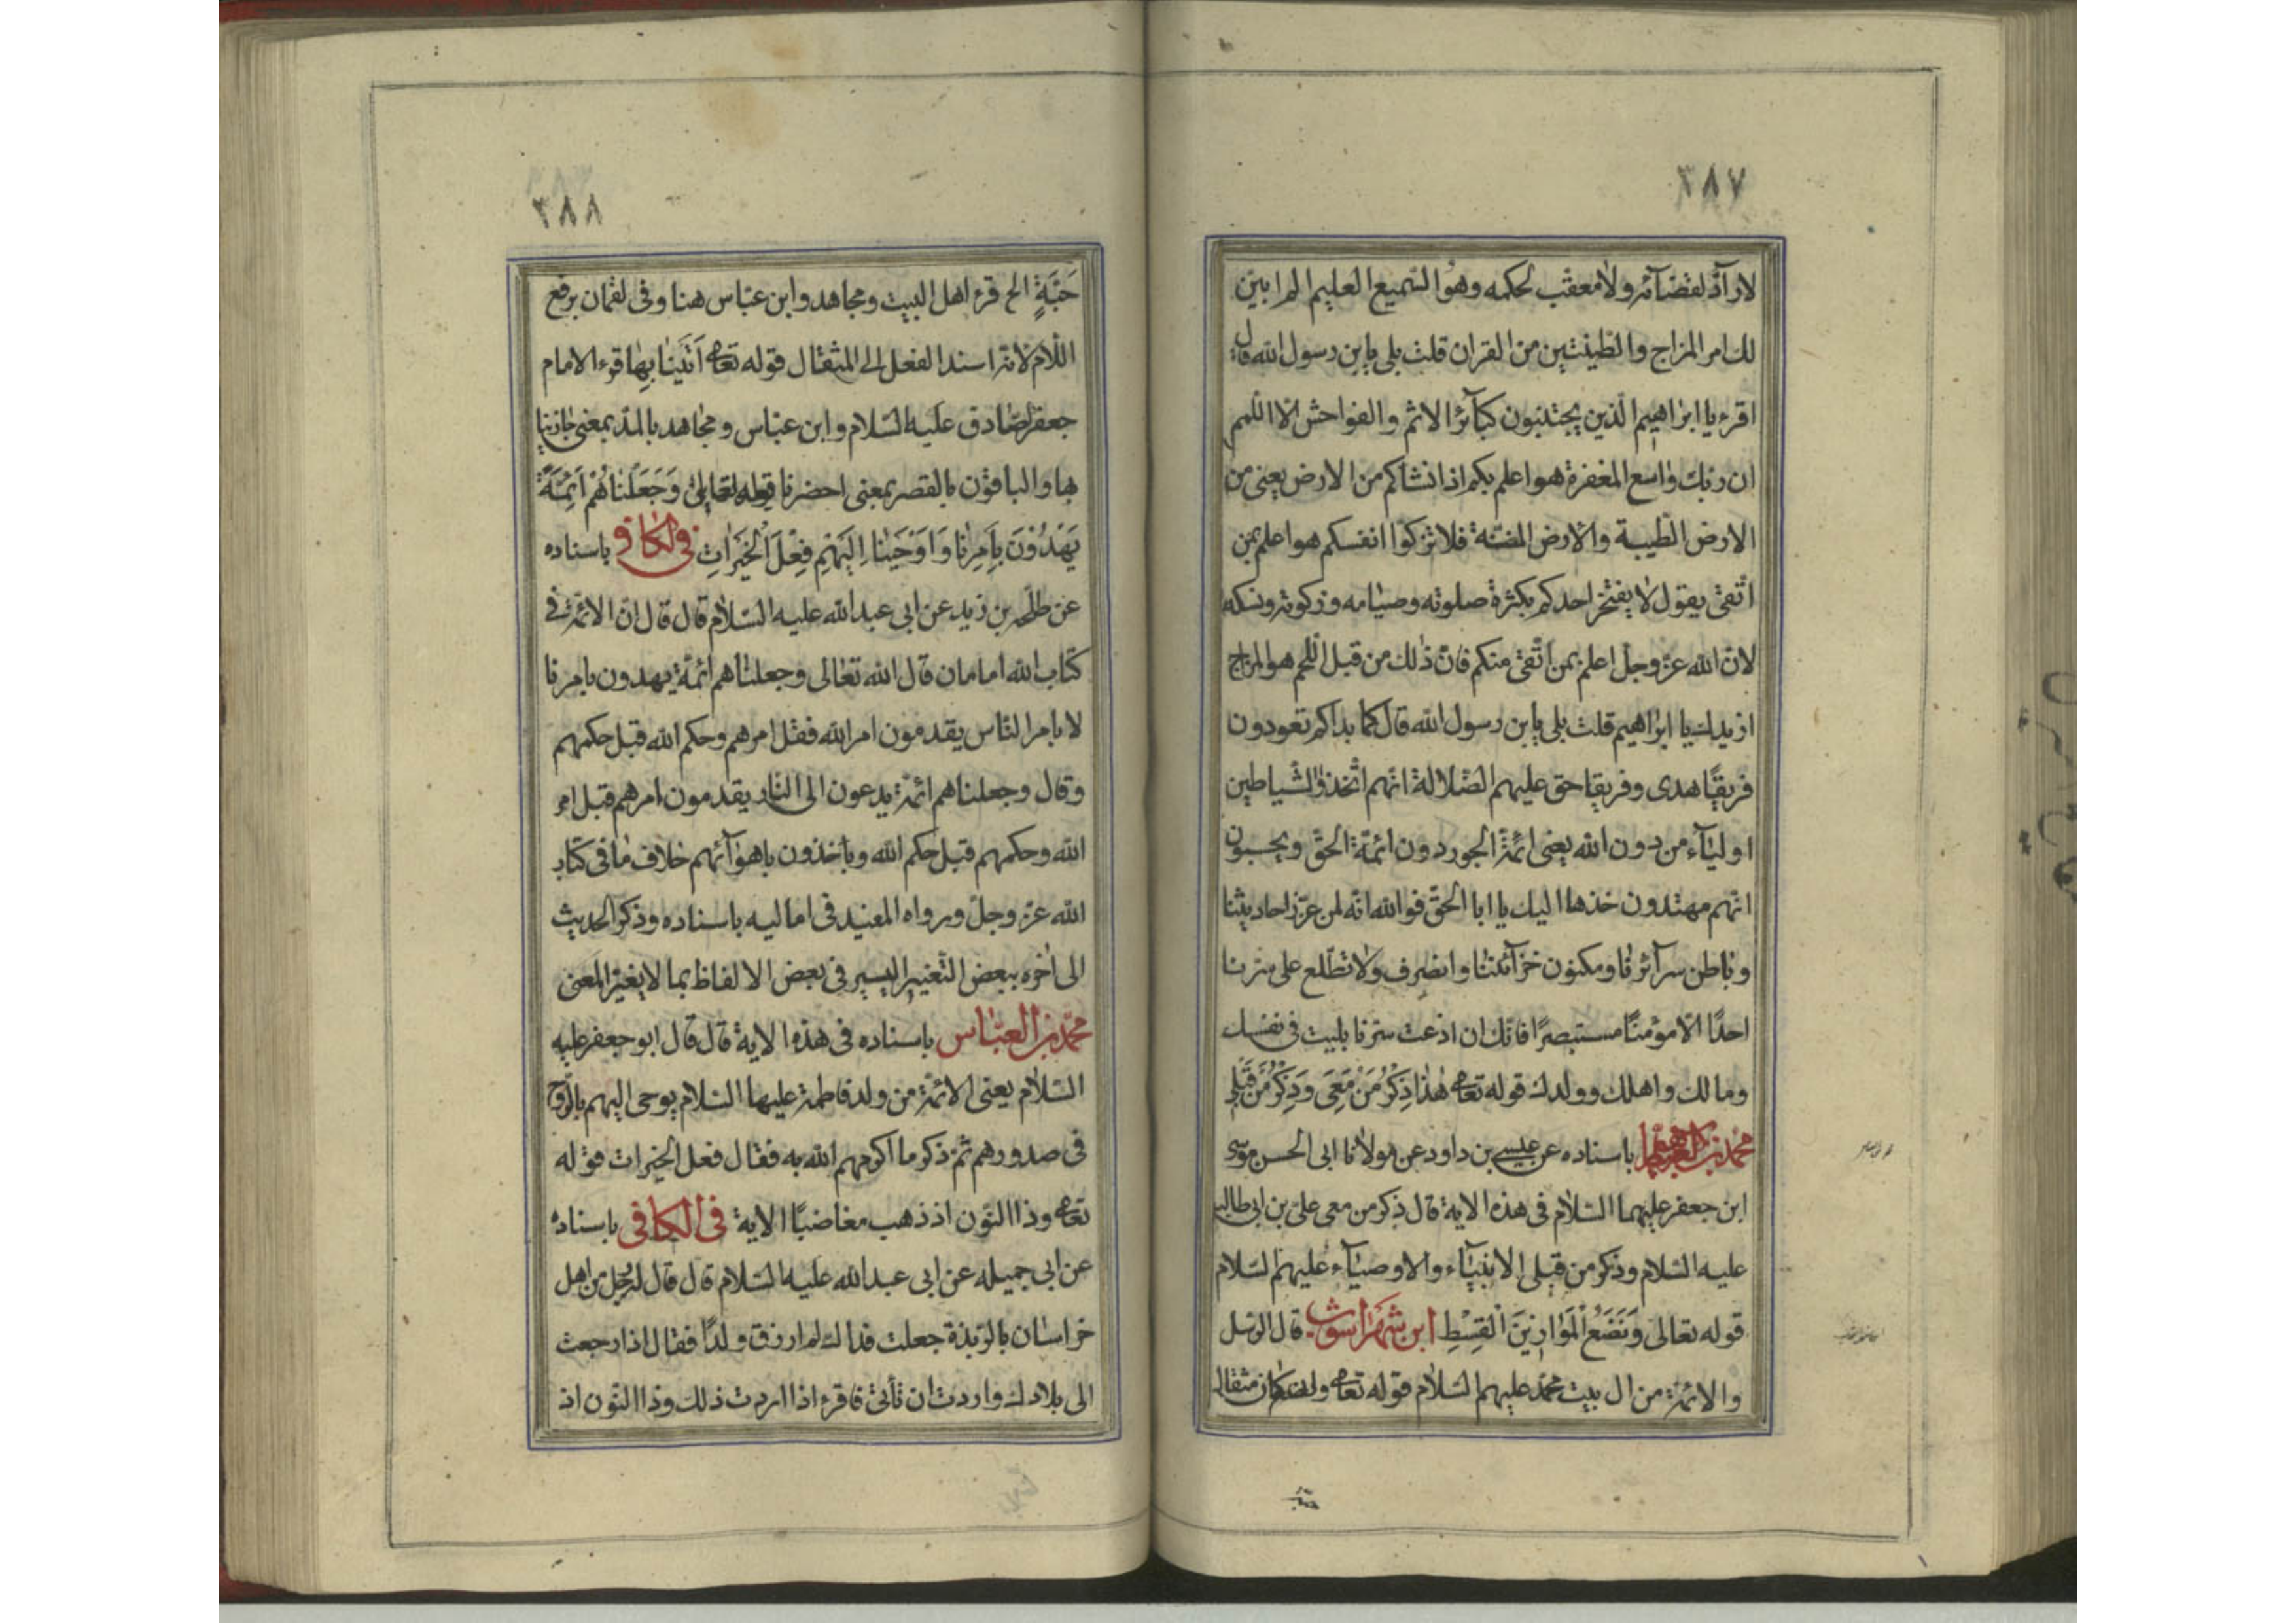 ٣٨٧
لا رآدّ لقضآئه ولا معقّب لحكمه وهو السّميع العليم الم ابيّن
لك امر المزاج والطّينتين من القران قلت بلى يابن رسول الله قال
اقرء يا ابراهيم الّذين يجتنبون كبآئر الاثم والفواحش الّا اللّمم
ان ربّك واسع المغفرة هو اعلم بكم اذ انشاكم من الارض يعنى من
الارض الطّيبة والارض المنتنة فلا تزكّوا انفسكم هو اعلم بمن
اتّقى يقول لا يفتخر احدكم بكثرة صلوته وصيامه وزكوته ونسكه
لانّ الله عزّ وجلّ اعلم بمن اتّقى منكم فانّ ذلك من قبل اللّمم هو المزاج
ازيدك يا ابراهيم قلت بلى يابن رسول الله قال كما بداكم تعودون
فريقًا هدى وفريقا حق عليهم الضّلالة انّهم اتّخذوا الشّياطين
اوليآء من دون الله يعنى ائمّة الجور دون ائمّة الحقّ ويحسبون
انّهم مهتدون خذها اليك يا ابا الحق فوالله انّه لمن غرر احاديثنا
وباطن سرآئرنا ومكنون خزآئننا وانصرف ولا تطّلع على سرّنا
احدًا الّا مؤمنًا مستبصرًا فانّك ان اذعت سرّنا بليت فى نفسك
ومالك واهلك وولدك قوله تعا هٰذا ذِكْرُ مَنْ مَعِىَ وَذِكْرُ مَنْ قَبْلِى
محمّد بن العباس باسناده عن عيسى بن داود عن مولانا ابى الحسن موسى
ابن جعفر عليهما السّلام فى هذه الاية قال ذكر من معى علىّ بن ابى طالب
عليه السّلام وذكر من قبلى الانبيآء والاوصيآء عليهم السّلام
قوله تعالى وَنَضَعُ الْمَوَازِينَ الْقِسْطِ ابن شهراشوب قال الرّسل
والائمّة من ال بيت محمّد عليهم السّلام قوله تعا وان كان مثقال
حبّة
٣٨٨
حَبَّةٍ الخ قرء اهل البيت ومجاهد وابن عبّاس هنا وفى لقمان برفع
اللّام لانّه اسند الفعل الى المثقال قوله تعا اَتَيْنٰا بِهٰا قرء الامام
جعفر الصّادق عليه السّلام وابن عبّاس ومجاهد بالمدّ بمعنى جازينا
بها والباقون بالقصر بمعنى احضرنا قوله تعالى وَجَعَلْنٰاهُمْ اَئِمَّةً
يَهْدُونَ بِاَمْرِنٰا وَاَوْحَيْنٰا اِلَيْهِمْ فِعْلَ الْخَيْرٰاتِ فى الكافى باسناده
عن طلحة بن زيد عن ابى عبد الله عليه السّلام قال قال انّ الائمّة فى
كتاب الله امامان قال الله تعالى وجعلناهم ائمّة يهدون بامرنا
لا بامر النّاس يقدمون امر الله قبل امرهم وحكم الله قبل حكمهم
وقال وجعلناهم ائمّة يدعون الى النّار يقدمون امرهم قبل امر
الله وحكمهم قبل حكم الله وياخذون باهوآئهم خلاف ما فى كتاب
الله عزّ وجلّ ورواه المفيد فى اماليه باسناده وذكر الحديث
الى اخره ببعض التّغيير اليسير فى بعض الالفاظ بما لا يغيّر المعنى
محمّد بن العبّاس باسناده فى هذه الاية قال قال ابو جعفر عليه
السّلام يعنى الائمّة من ولد فاطمة عليها السّلام يوحى اليهم بالرّوح
فى صدورهم ثمّ ذكر ما اكرمهم الله به فقال فعل الخيرات قوله
تعا وذا النّون اذ ذهب مغاضبًا الاية فى الكافى باسناده
عن ابى جميله عن ابى عبد الله عليه السّلام قال قال له رجل من اهل
خراسان بالرّبذة جعلت فداك لم ارزق ولدًا فقال اذا رجعت
الى بلادك واردت ان تأتى فاقرء اذا اردت ذلك وذا النّون اذ